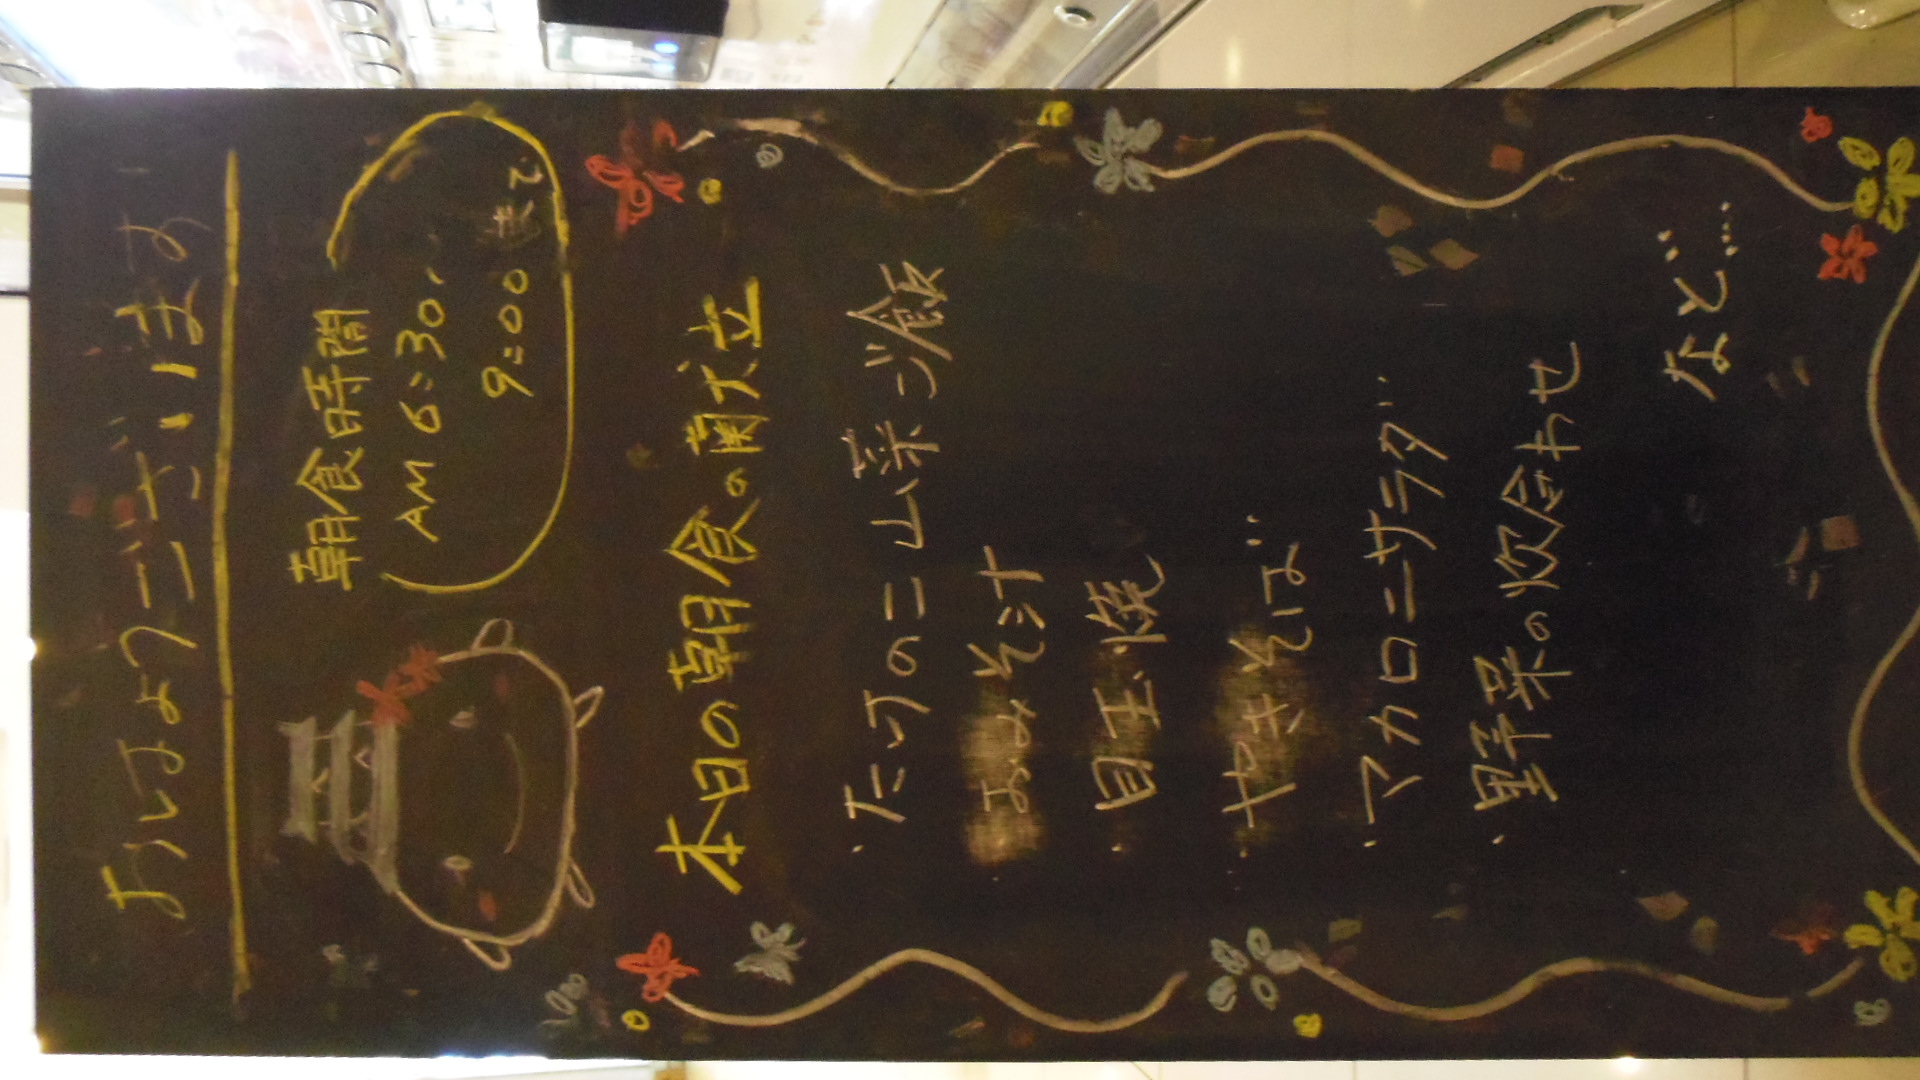 おはようございます
朝食時間
AM 6:30～
9:00 まで
本日の朝食の献立
・たけのこ山菜ご飯
・おみそ汁
・目玉焼
・やきそば
・マカロニサラダ
・野菜の炊合わせ
など…